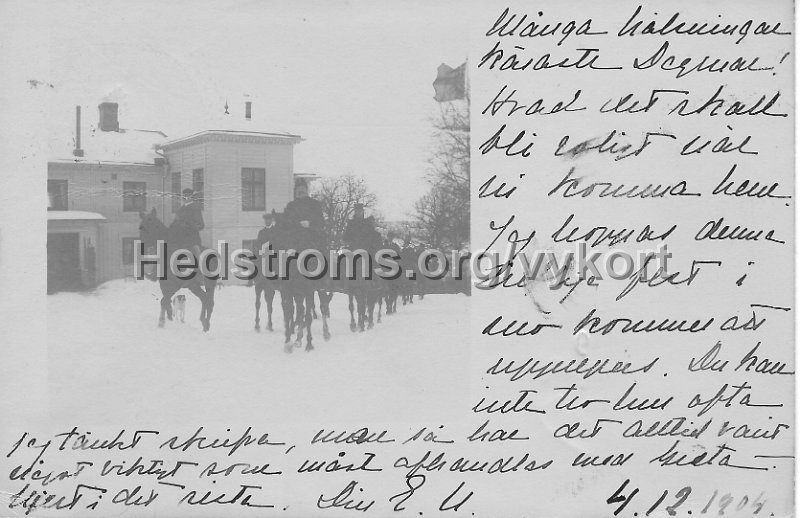 Många hälsningar
käraste Dagmar!
Hvad det skall
bli roligt när
ni komma hem.
Jag hoppas denna
fest i
snö kommer att
upprepas. Du kan
inte tro hur ofta
jag tänkt skrifva, men så har det alltid varit
något viktigt som måst afhandlas med Greta
Hjert i det sista. Din E. U.
4.12.1904.
Hedstroms.org/vykort